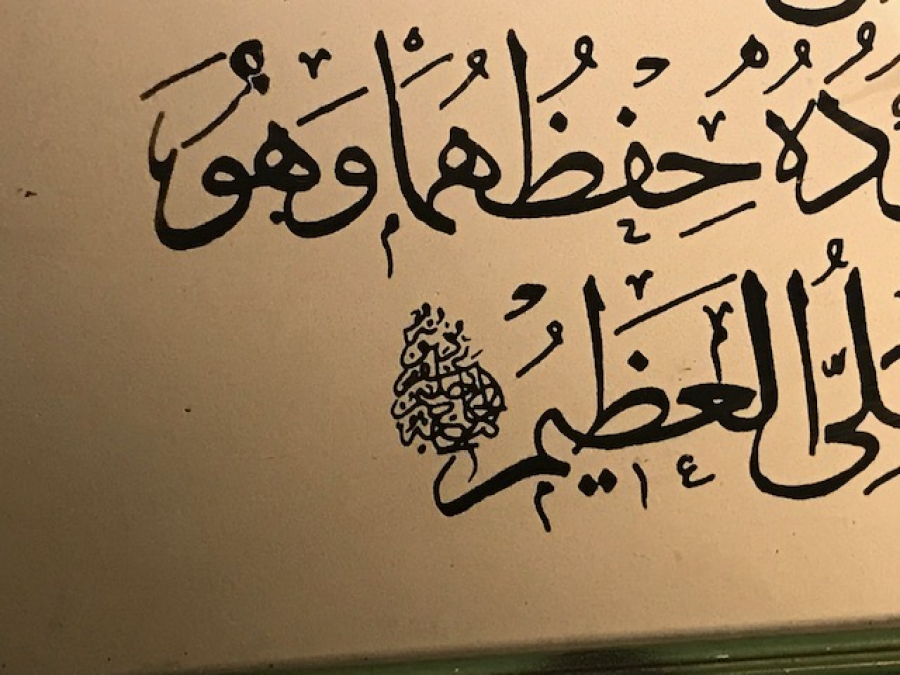 دُهُ حِفْظُهُمَا وَهُوَ
لِىُّ الْعَظِيمُ